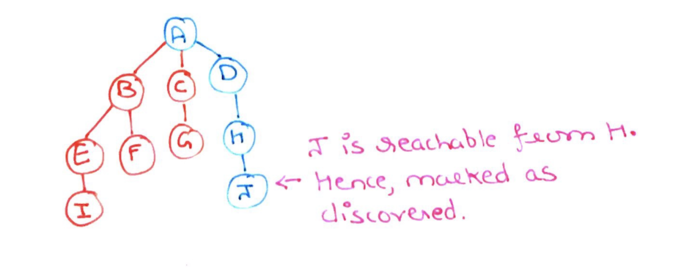 A
B C D
E F G H
I J
J is reachable from H.
← Hence, marked as
discovered.